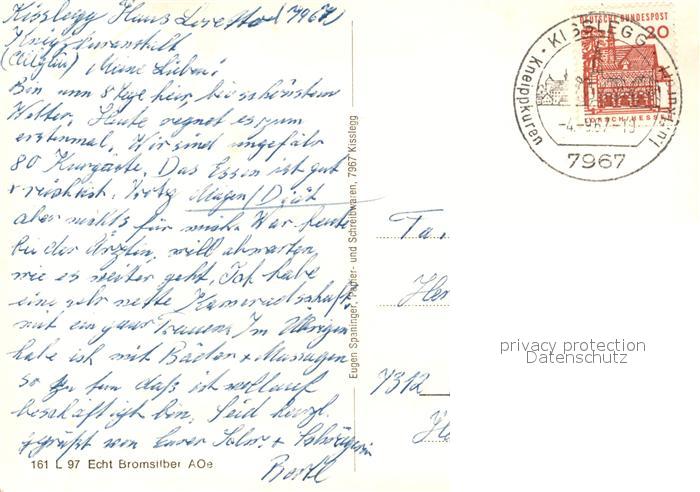 Kisslegg Haus Loretto 7967
Kneippkuranstalt
(Allgäu) Meine Lieben!
Bin nun 8 Tage hier, bei schönstem
Wetter. Heute regnet es zum
erstenmal. Wir sind ungefähr
80 Kurgäste. Das Essen ist gut
reichlich. Trotz Magen/Diät
aber nichts für mich. War heute
bei der Ärztin, will abwarten
wie es weiter geht. Ich habe
eine sehr nette Kameradschaft
mit ein paar Frauen. Im Übrigen
habe ich mit Bäder + Massagen
so zu tun daß ich vollauf
beschäftigt bin. Seid herzl.
gegrüßt von Eurer + Schwägerin
161 L 97 Echt Bromsilber AOe
Eugen Spaninger, Papier- und Schreibwaren, 7967 Kisslegg
DEUTSCHE BUNDESPOST
20
LORSCH/HESSEN
KISSLEGG
Kneippkuren
7967
Fa.
7312
privacy protection
Datenschutz